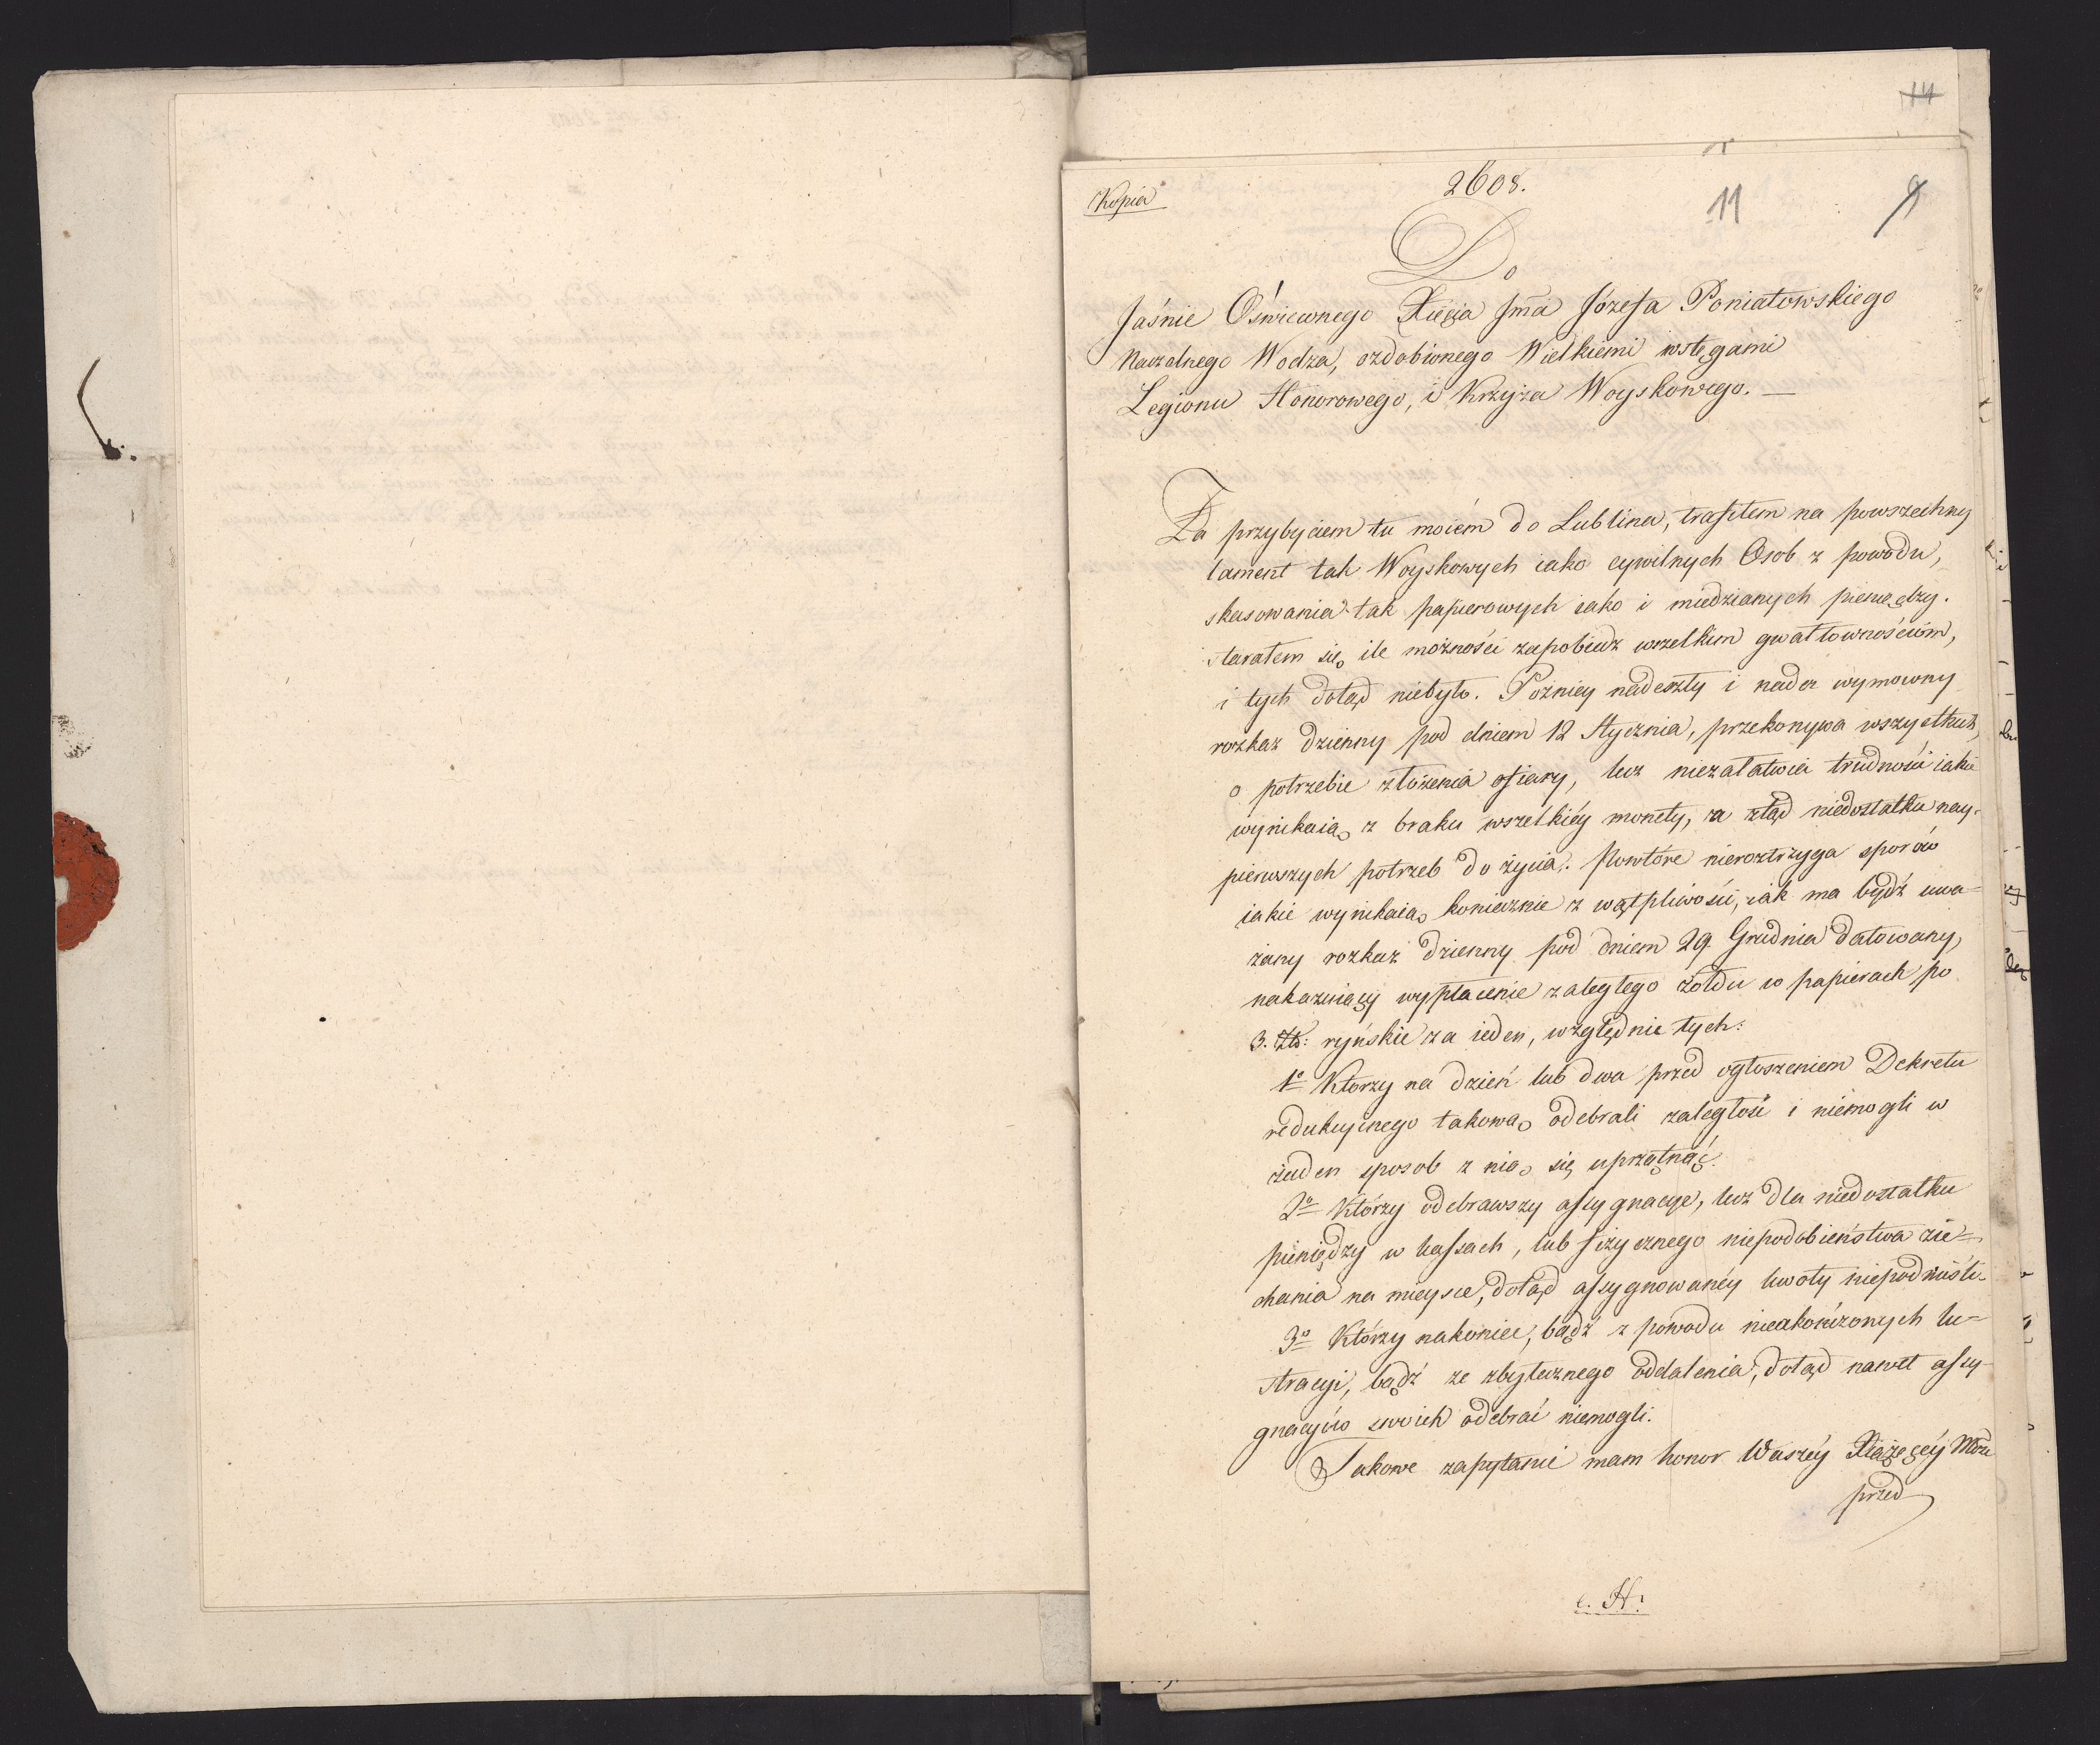 14
Kopia
2608.
11
9
Do
Jaśnie Oświeconego Xięcia Jmci Józefa Poniatowskiego
Naczelnego Wodza, ozdobionego Wielkiemi wstęgami
Legionu Honorowego, i Krzyża Woyskowego. —
Za przybyciem tu moiém do Lublina, trafiłem na powszechny
lament tak Woyskowych iako cywilnych Osob z powodu,
skasowania tak papierowych iako i miedzianych pieniędzy.
starałem się ile możności zapobiedz wszelkim gwałtownościóm,
i tych dotąd niebyło. Pożniey nadeszły i nader wymowny
rozkaz dzienny pod dniem 12 Stycznia, przekonywa wszystkich,
o potrzebie złożenia ofiary, lecz niezałatwia trudności iakie
wynikaią z braku wszelkiéy monety, a ztąd niedostatku nay-
pierwszych potrzeb do życia. powtóre nieroztrzyga sporów
iakie wynikaią koniecznie z wątpliwości, iak ma bydź uwa=
żany rozkaz dzienny pod dniem 29. Grudnia datowany,
nakazuiący wypłacenie zaległego żołdu w papierach po
3. Zło: ryńskie za ieden, względnie tych:
1o Ktorzy na dzień lub dwa przed ogłoszeniem Dekretu
redukcyinego takową odebrali zaległość i niemogli w
żaden sposob z nią się uprzątnąć.
2o Którzy odebrawszy assygnacye, lecz dla niedostatku
pieniędzy w kassach, lub fizycznego niepodobieństwa zie=
chania na mieysce, dotąd assygnowanéy kwoty niepodnieśli.
3o Którzy nakoniec, bądź z powodu nieukończonych lu=
stracyi, bądź ze zbytecznego oddalenia, dotąd nawet assy-
gnacyiów swoich odebrać niemogli.
Takowe zapytanie mam honor Waszéy Xiążęcéy Mści
przed
c. H: